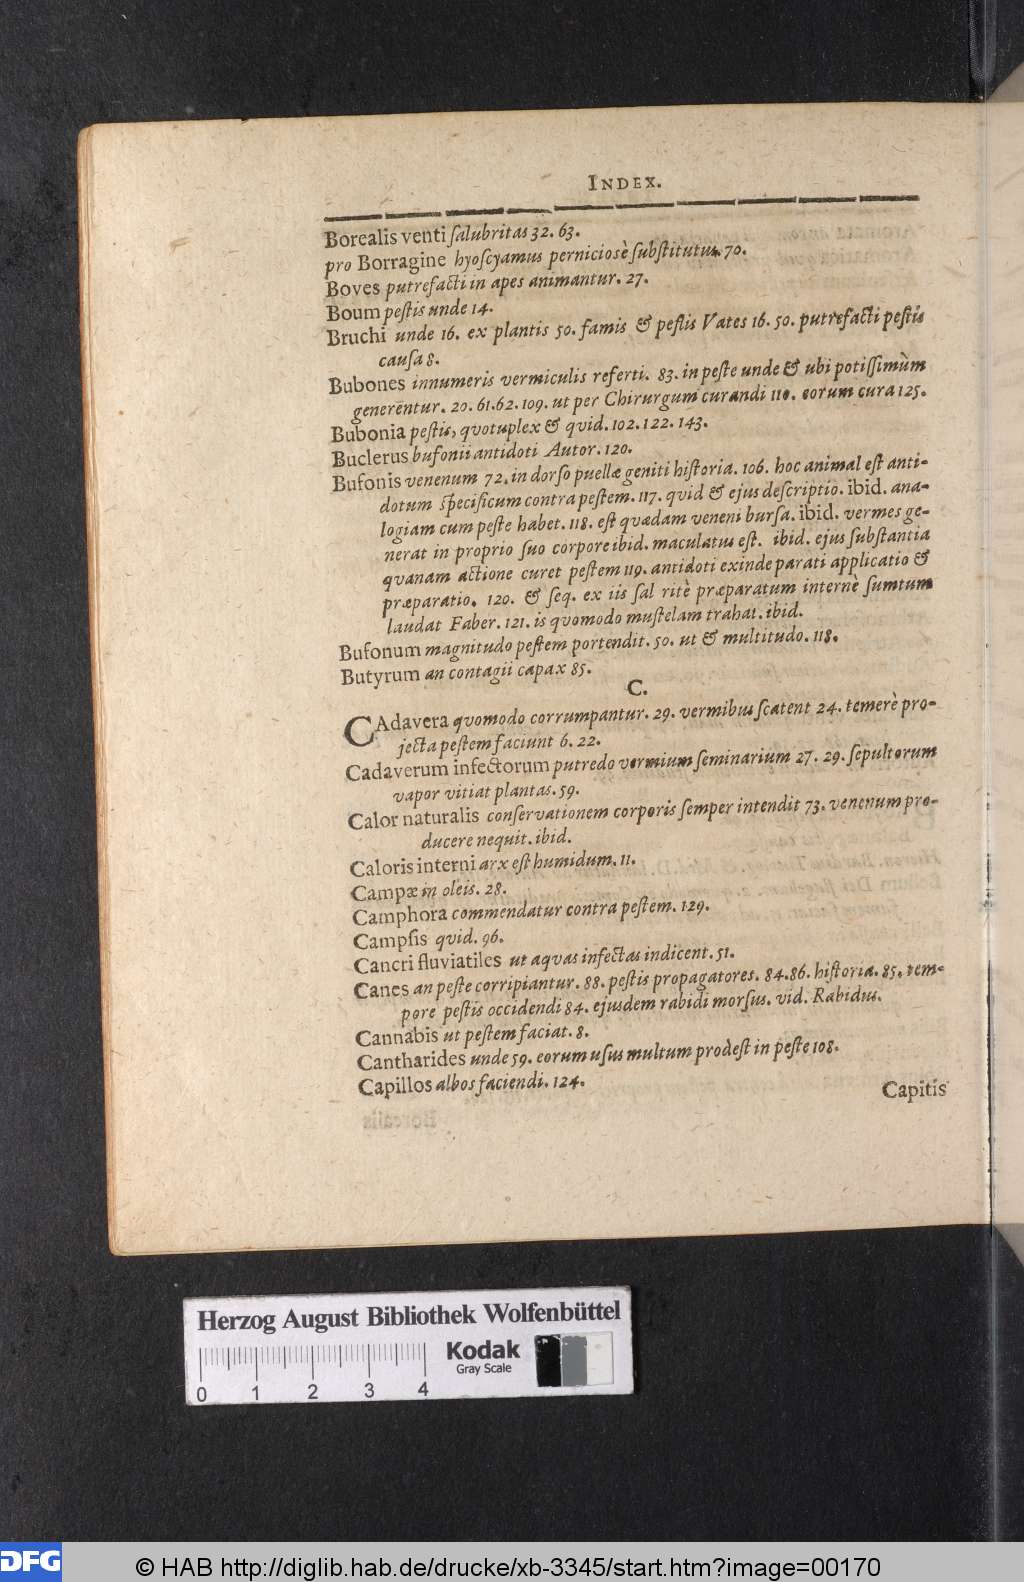 INDEX.
Borealis venti ſalubritas 32. 63.
pro Borragine hyoſcyamus pernicioſè ſubſtitutus. 70.
Boves putrefacti in apes animantur. 27.
Boum peſtis unde 14.
Bruchi unde 16. ex plantis 50. famis & peſtis Vates 16. 50. putrefacti peſtis
cauſa 8.
Bubones innumeris vermiculis referti. 83. in peſte unde & ubi potiſſimùm
generentur. 20. 61. 62. 109. ut per Chirurgum curandi 110. eorum cura 125.
Bubonia peſtis, quotuplex & quid. 102. 122. 143.
Buclerus bufonii antidoti Autor. 120.
Bufonis venenum 72. in dorſo puellæ geniti hiſtoria. 106. hoc animal eſt anti-
dotum ſpecificum contra peſtem. 117. quid & ejus deſcriptio. ibid. ana-
logiam cum peſte habet. 118. eſt quædam veneni burſa. ibid. vermes ge-
nerat in proprio ſuo corpore ibid. maculatus eſt. ibid. ejus ſubſtantia
quanam actione curet peſtem 119. antidoti exinde parati applicatio &
præparatio. 120. & ſeq. ex iis ſal ritè præparatum internè ſumtum
laudat Faber. 121. is quomodo muſtelam trahat. ibid.
Bufonum magnitudo peſtem portendit. 50. ut & multitudo. 118.
Butyrum an contagii capax 85.
C.
CAdavera quomodo corrumpantur. 29. vermibus ſcatent 24. temerè pro-
jecta peſtem faciunt 6. 22.
Cadaverum infectorum putredo vermium ſeminarium 27. 29. ſepultorum
vapor vitiat plantas. 59.
Calor naturalis conſervationem corporis ſemper intendit 73. venenum pro-
ducere nequit. ibid.
Caloris interni arx eſt humidum. 11.
Campæ in oleis. 28.
Camphora commendatur contra peſtem. 129.
Campſis quid. 96.
Cancri fluviatiles ut aquas infectas indicent. 51.
Canes an peſte corripiantur. 88. peſtis propagatores. 84. 86. hiſtoria. 85. tem-
pore peſtis occidendi 84. ejusdem rabidi morſus. vid. Rabidus.
Cannabis ut peſtem faciat. 8.
Cantharides unde 59. eorum uſus multum prodeſt in peſte 108.
Capillos albos faciendi. 124.
Capitis
Herzog August Bibliothek Wolfenbüttel
Kodak
Gray Scale
0 1 2 3 4
DFG
© HAB http://diglib.hab.de/drucke/xb-3345/start.htm?image=00170